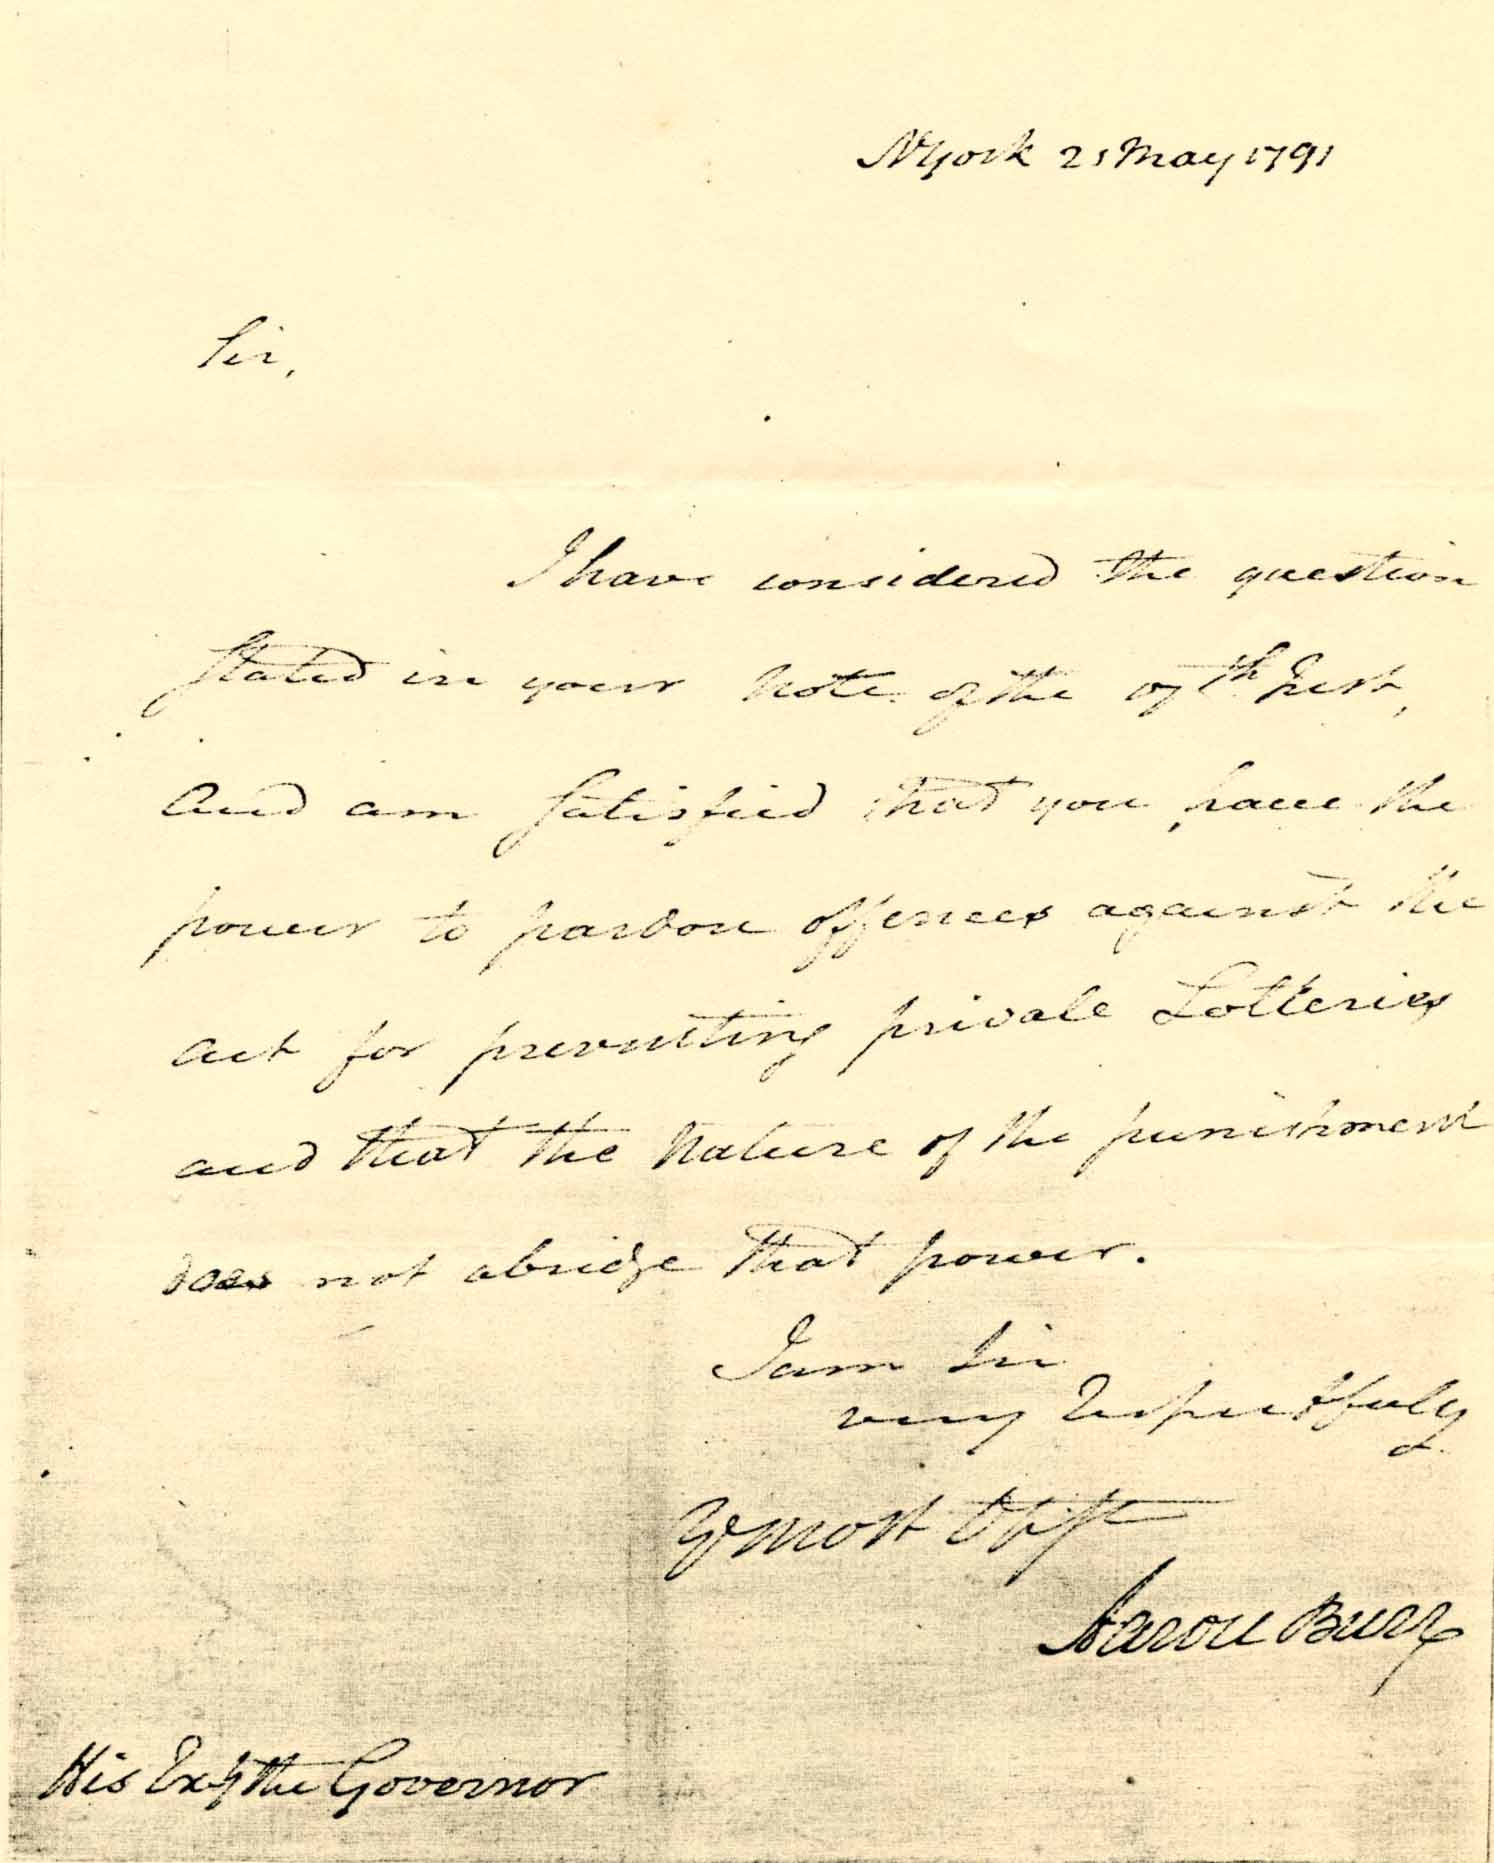 NYork 21 May 1791
Sir,
I have considered the question
stated in your Note of the 17th Inst,
and am satisfied that you have the
power to pardon offences against the
act for preventing private Lotteries
and that the Nature of the punishment
does not abridge that power.
I am Sir
very Respectfuly
Yr most Obt St
Aaron Burr
His Exy the Governor